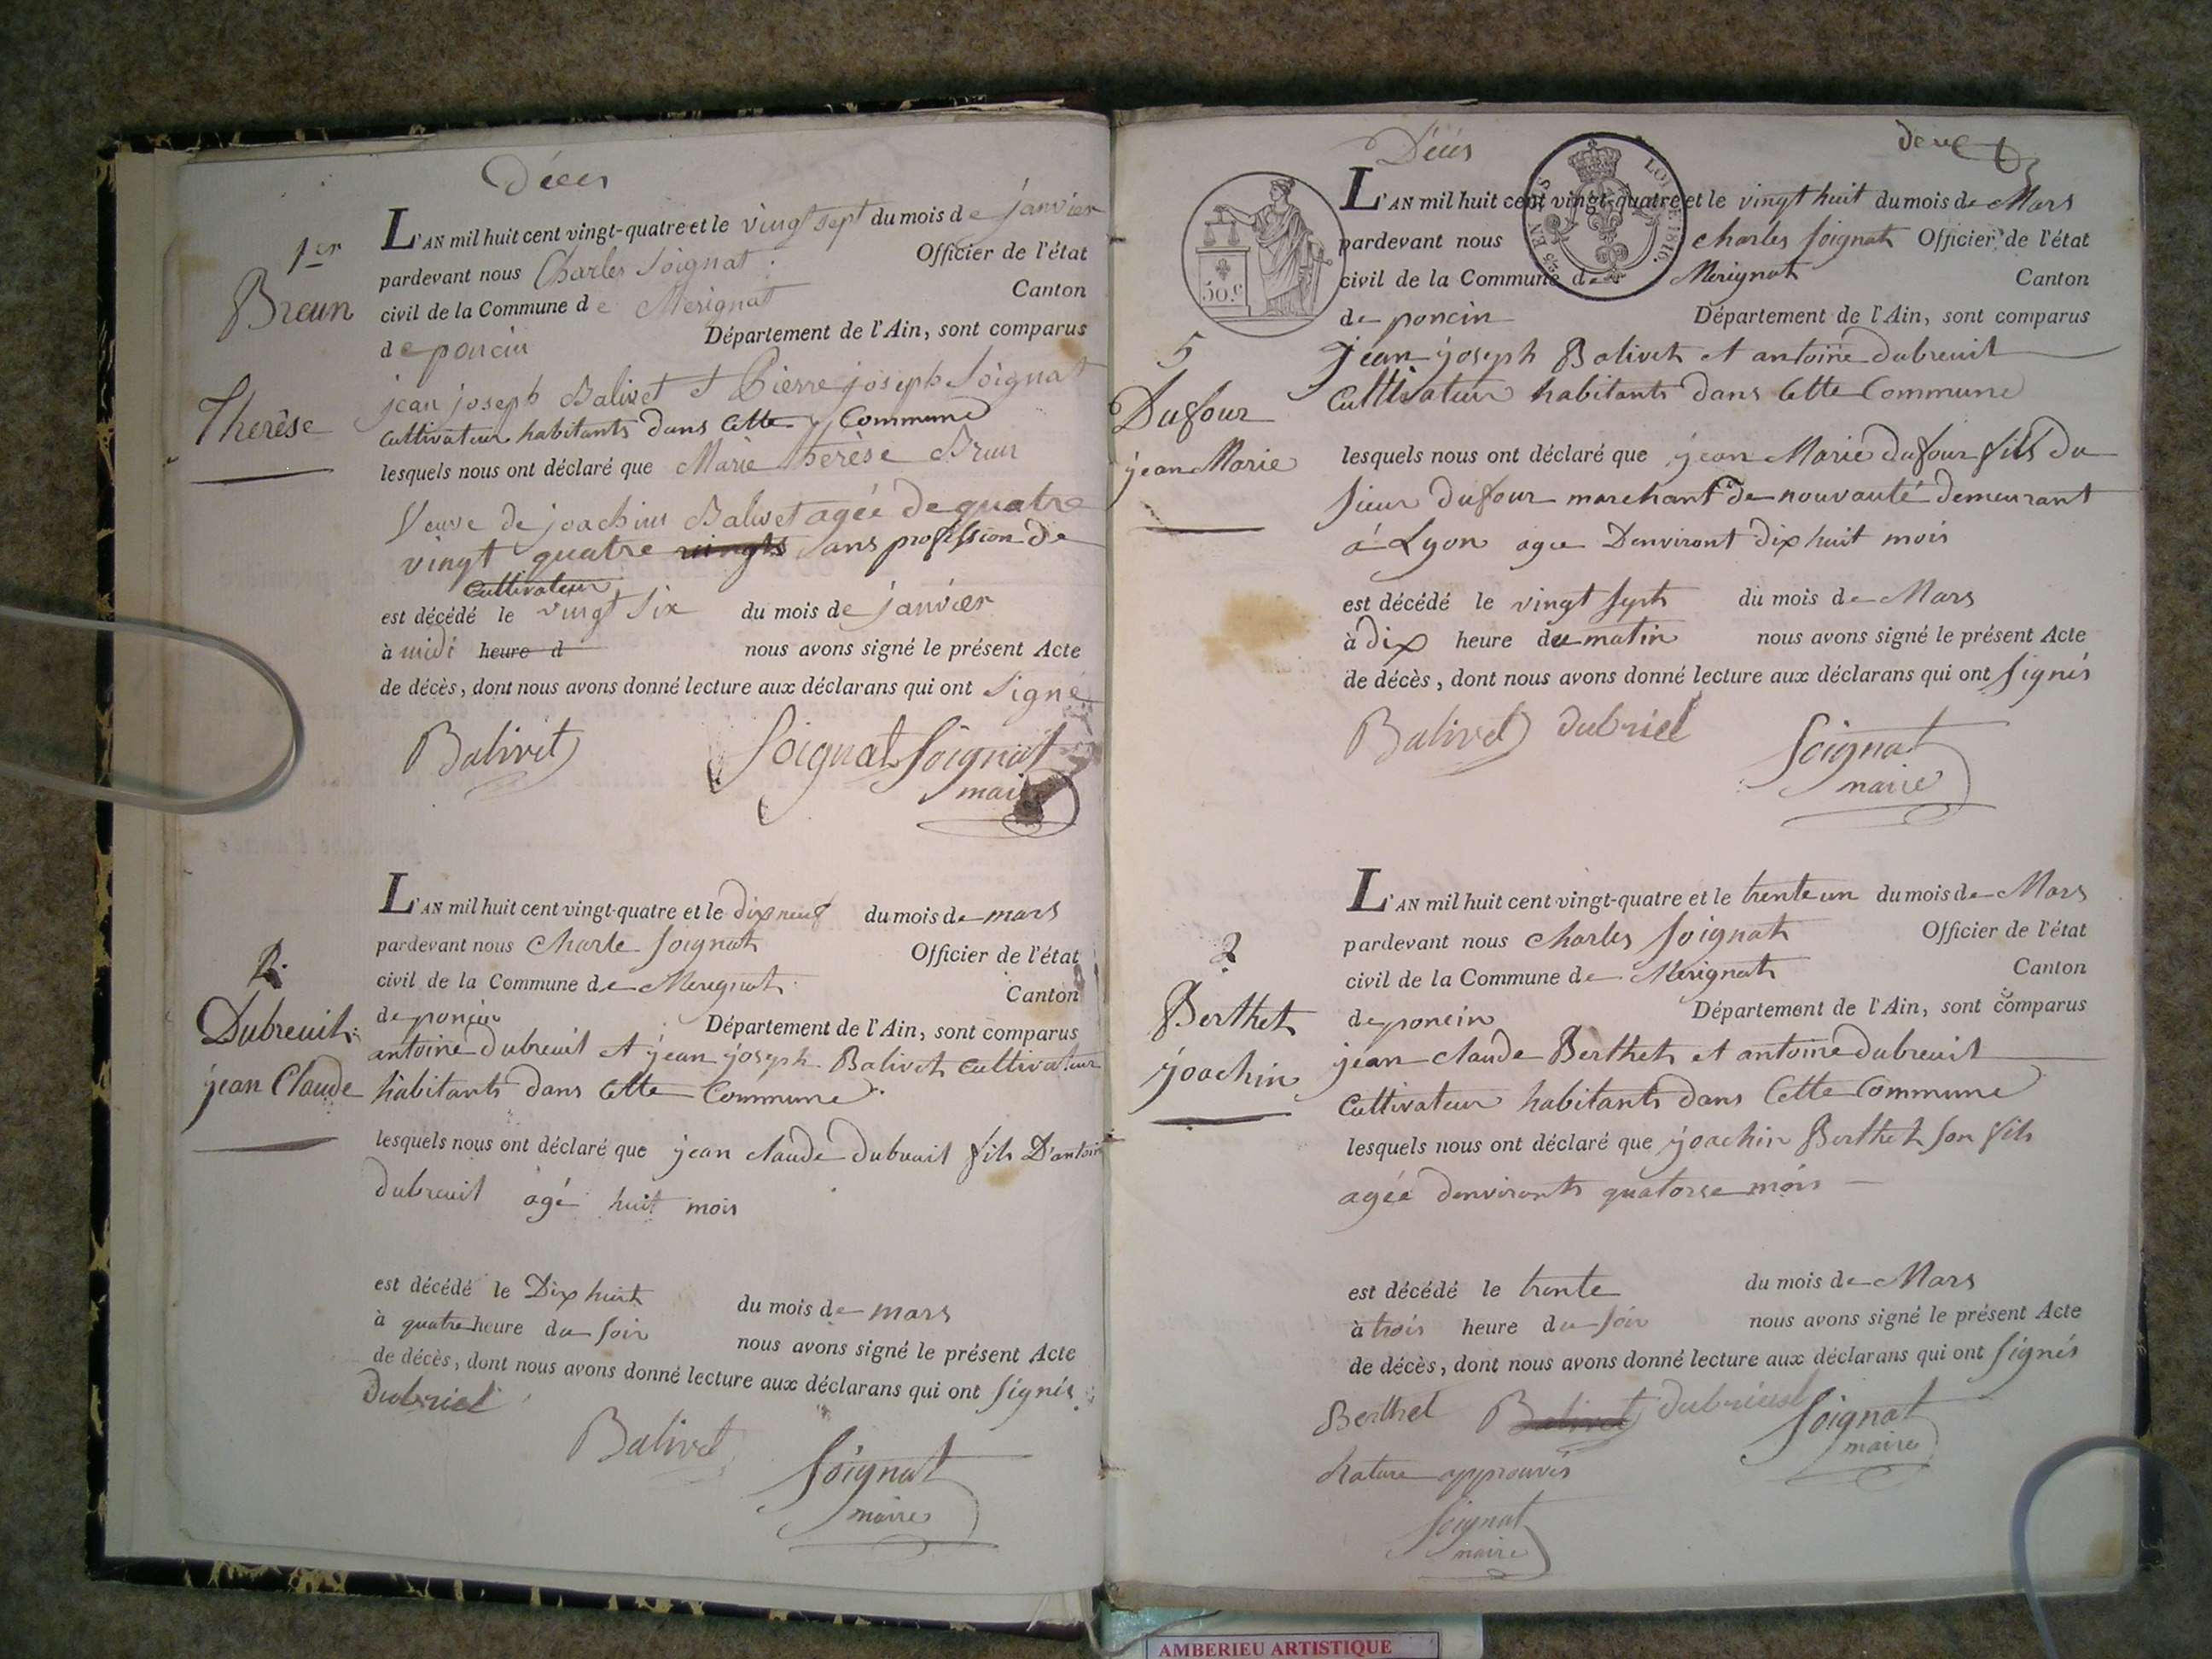 Décès
1er
Breun
Therèse
L'AN mil huit cent vingt-quatre et le vingt sept du mois de janvier
pardevant nous Charles Soignat Officier de l'état
civil de la Commune de Merignat Canton
de poncin Département de l'Ain, sont comparus
jean joseph Balivet et Pierre joseph Soignat
Cultivateur habitants dans Cette Commune
lesquels nous ont déclaré que Marie thérèse Brun
Veuve de joachim Balivet agée de quatre
vingt quatre vingts ans profession de
Cultivateur
est décédé le vingt Six du mois de janvier
à midi heure d nous avons signé le présent Acte
de décès, dont nous avons donné lecture aux déclarans qui ont Signé
Balivet Soignat Soignat
maire
2
Dubreuil
jean Claude
L'AN mil huit cent vingt-quatre et le dixneuf du mois de mars
pardevant nous Charle Soignat Officier de l'état
civil de la Commune de Merignat Canton
de poncin Département de l'Ain, sont comparus
antoine dubreuil et jean joseph Balivet Cultivateur
habitants dans Cette Commune
lesquels nous ont déclaré que jean claude dubreuil fils D'antoin
dubreuil agé huit mois
est décédé le Dix huit du mois de mars
à quatre heure du Soir nous avons signé le présent Acte
de décès, dont nous avons donné lecture aux déclarans qui ont Signés
dubriel
Balivet Soignat
maire
Décès deux
50.c
LOI DE 1816.
5
Dufour
jean Marie
L'AN mil huit cent vingt-quatre et le vingt huit du mois de Mars
pardevant nous charles Soignat Officier de l'état
civil de la Commune de Merignat Canton
de poncin Département de l'Ain, sont comparus
jean joseph Balivet et antoine dubreuil
Cultivateur habitants dans Cette Commune
lesquels nous ont déclaré que jean Marie dufour fils du
Sieur dufour marchant de nouvauté demeurant
à Lyon agée Denviront dix huit mois
est décédé le vingt Sept du mois de Mars
à dix heure du matin nous avons signé le présent Acte
de décès, dont nous avons donné lecture aux déclarans qui ont Signés
Balivet dubriel Soignat
maire
Berthet
joachin
L'AN mil huit cent vingt-quatre et le trente un du mois de Mars
pardevant nous charles Soignat Officier de l'état
civil de la Commune de Merignat Canton
de poncin Département de l'Ain, sont comparus
jean claude Berthet et antoine dubreuil
Cultivateur habitants dans Cette Commune
lesquels nous ont déclaré que joachin Berthet Son fils
agée denvironts quatorse mois
est décédé le trente du mois de Mars
à trois heure du Soir nous avons signé le présent Acte
de décès, dont nous avons donné lecture aux déclarans qui ont Signés
Berthet Balivet dubrieul Soignat
maire
Rature approuvés
Soignat
maire
AMBERIEU ARTISTIQUE